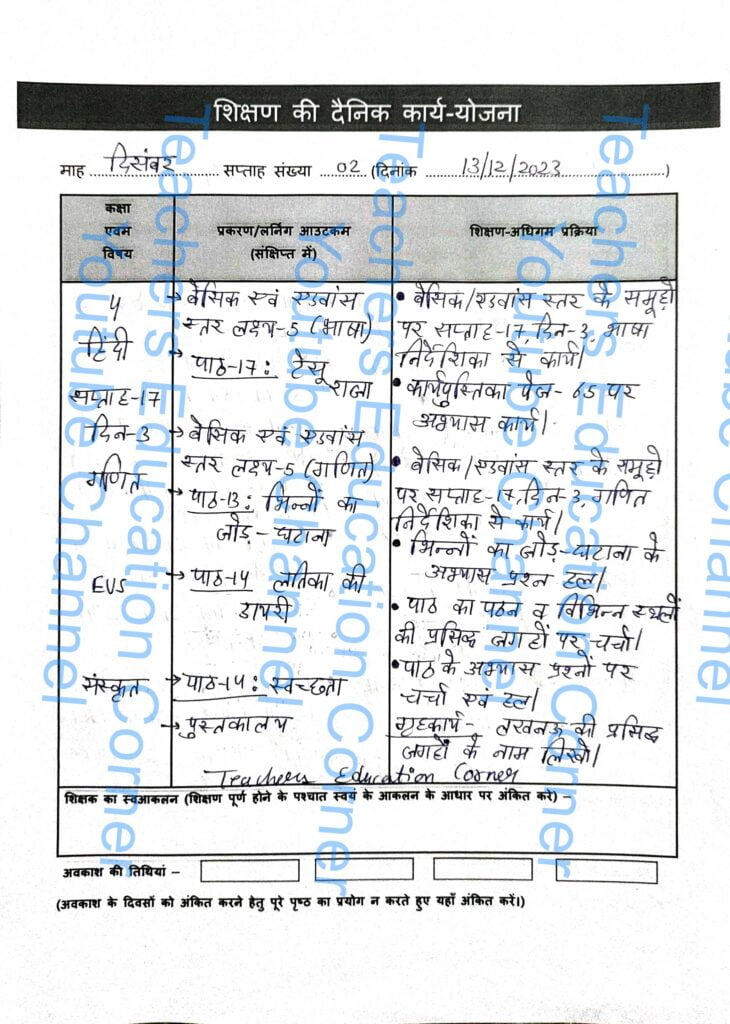 शिक्षण की दैनिक कार्य-योजना
माह ......दिसंबर...... सप्ताह संख्या ....02.... (दिनांक ......13/12/2023......)
कक्षा
एवम
विषय
प्रकरण/लर्निंग आउटकम
(संक्षिप्त में)
शिक्षण-अधिगम प्रक्रिया
5
हिंदी
सप्ताह-17
दिन-3
गणित
EVS
संस्कृत
→ बेसिक एवं एडवांस
स्तर लक्ष्य-5 (भाषा)
→ पाठ-17: टेसू
राजा
→ बेसिक एवं एडवांस
स्तर लक्ष्य-5 (गणित)
→ पाठ-13: भिन्नों का
जोड़-घटाना
→ पाठ-14 लतिका की
डायरी
→ पाठ-14: स्वच्छता
→ पुस्तकालय
• बेसिक/एडवांस स्तर के समूहों
पर सप्ताह-17, दिन-3, भाषा
निर्देशिका से कार्य।
• कार्यपुस्तिका पेज-65 पर
अभ्यास कार्य।
• बेसिक/एडवांस स्तर के समूहों
पर सप्ताह-17, दिन-3, गणित
निर्देशिका से कार्य।
• भिन्नों का जोड़-घटाना के
अभ्यास प्रश्न हल।
• पाठ का पठन व विभिन्न स्थलों
की प्रसिद्ध जगहों पर चर्चा।
• पाठ के अभ्यास प्रश्नों पर
चर्चा एवं हल।
गृहकार्य- लखनऊ की प्रसिद्ध
जगहों के नाम लिखो।
Teachers Education Corner
शिक्षक का स्वआकलन (शिक्षण पूर्ण होने के पश्चात स्वयं के आकलन के आधार पर अंकित करें) –
अवकाश की तिथियां –
(अवकाश के दिवसों को अंकित करने हेतु पूरे पृष्ठ का प्रयोग न करते हुए यहाँ अंकित करें।)
Teachers Education Corner
Youtube Channel
Teachers Education Corner
Youtube Channel
Teachers Education Corner
Youtube Channel